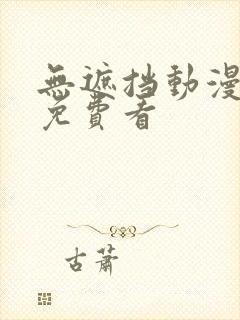 無遮挡動漫
免費看
古蕭